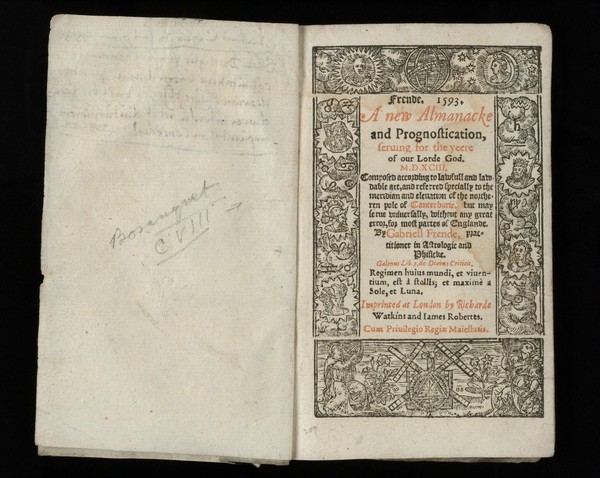 Bosanquet
C VIII
Frende. 1593.
A new Almanacke
and Prognostication,
seruing for the yeere
of our Lorde God.
M.D.XCIII.
Composed according to lawfull and lau-
dable art, and referred specially to the
meridian and eleuation of the northe-
ren pole of Canterburie. but may
serue vniuersally, without any great
error, for most partes of Englande.
By Gabriell Frende, prac-
titioner in Astrologie and
Phisicke.
Galenus Lib. 3. de Diebus Criticis.
Regimen huius mundi, et viuen-
tium, est à stellis; et maximè a
Sole, et Luna.
Imprinted at London by Richarde
Watkins and Iames Robertes.
Cum Priuilegio Regiæ Maiestatis.